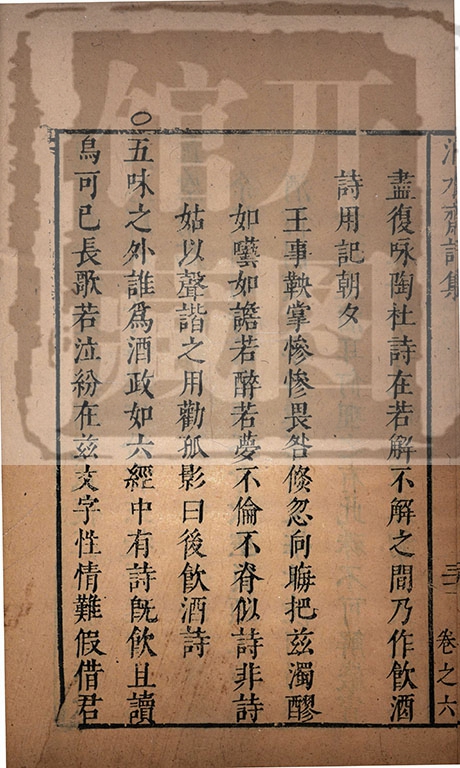 盡復咏陶杜詩在若解不解之間乃作飲酒
詩用記朝夕
王事鞅掌慘慘畏咎倐忽向晦把兹濁醪
如囈如譫若醉若夢不倫不脊似詩非詩
姑以聲諧之用勸孤影曰後飲酒詩
○五味之外誰爲酒政如六經中有詩旣飲且讀
烏可已長歌若泣紛在兹文字性情難假借君
卷之六